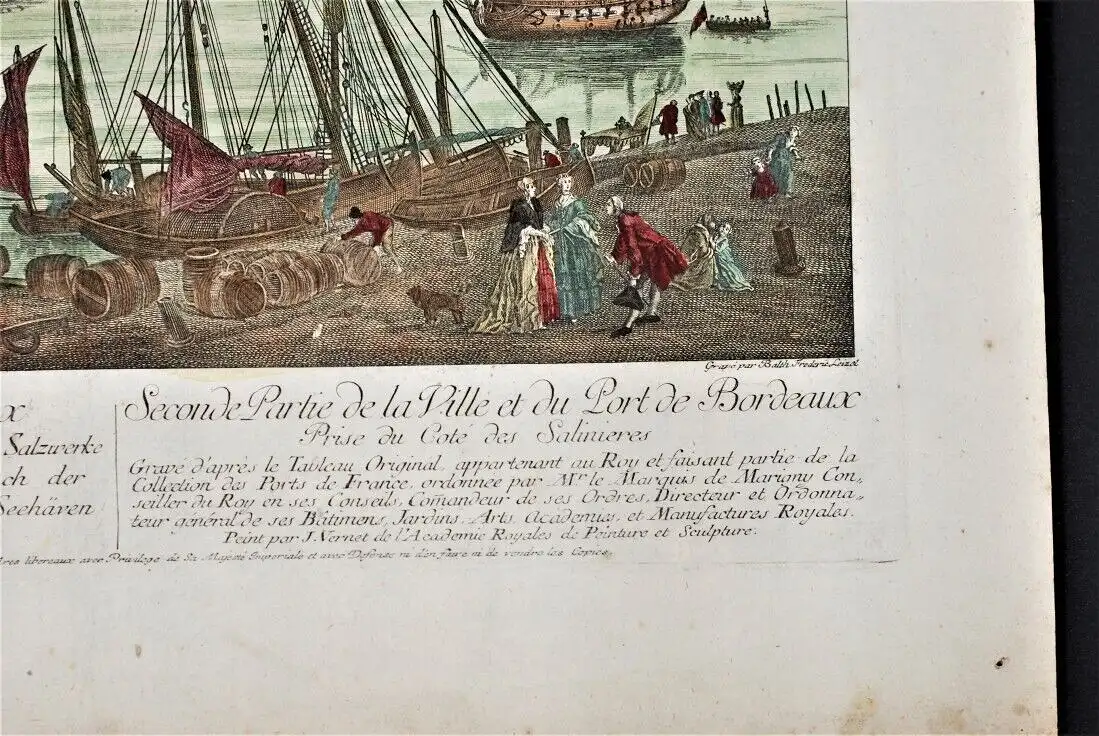 Gravé par Balth. Frederic Leizel
x
Salzwerke
ch der
Seehäven
Seconde Partie de la Ville et du Port de Bordeaux
Prise du Coté des Salinieres
Gravé d'après le Tableau Original, appartenant au Roy et faisant partie de la
Collection des Ports de France, ordonnée par Mr. le Marquis de Marigny Con„
seiller du Roy en ses Conseils, Comandeur de ses Ordres, Directeur et Ordonna„
teur général de ses Bâtimens, Jardins, Arts, Academies, et Manufactures Royales.
Peint par J. Vernet de l'Academie Royales de Peinture et Sculpture.
Ares libereaux avec Privilege de Sa Majesté Imperiale et avec Defense ni d'en faire ni de vendre les Copies.